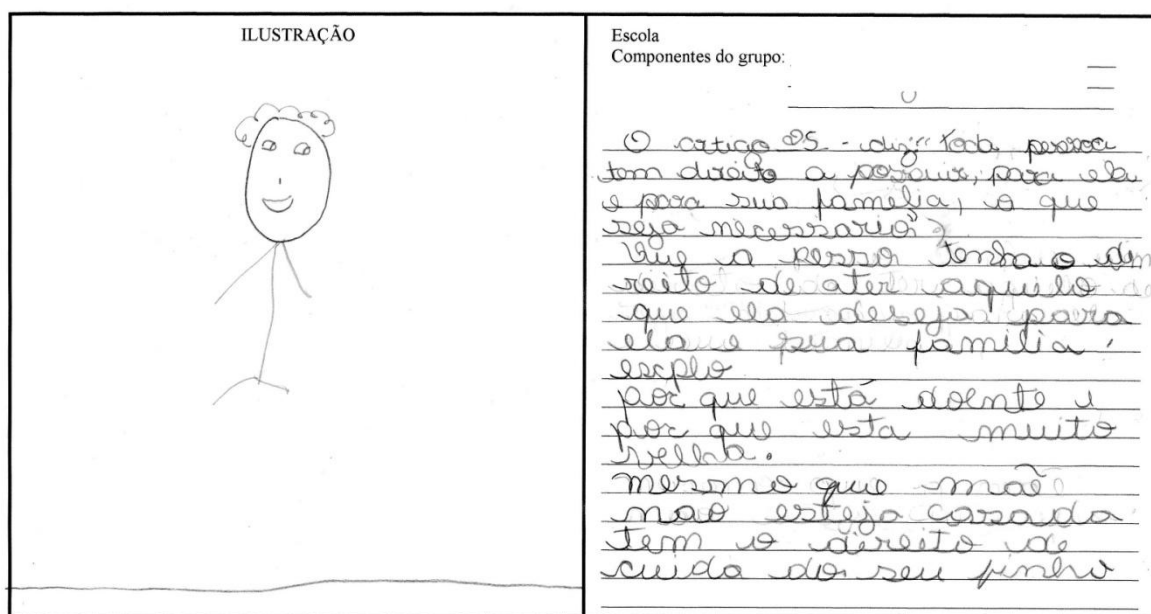 ILUSTRAÇÃO
Escola
Componentes do grupo:
O artigo 25 - diz "Toda pessoa
tem direito a possuir, para ela
e para sua familia, o que
seja necessario"
Que a pesso tenha o di
reito de ater aquilo
que ela deseja para
ela e sua familia.
explo
por que está doente e
por que esta muito
velha.
mesmo que mãe
nao esteja casada
tem o direito de
cuida do seu finho